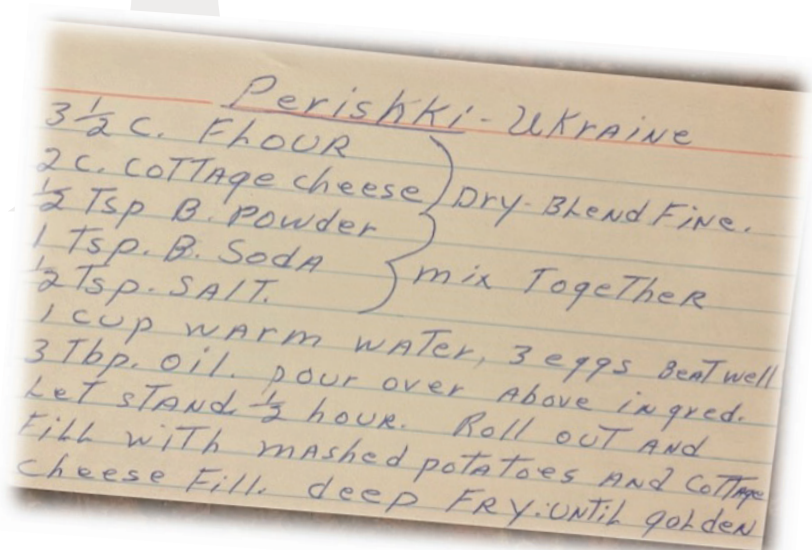 Perishki - UKRAINE
3 1/2 C. FLOUR
2 C. COTTAge cheese } DRy - BLend FiNe.
1/2 Tsp B. Powder
1 Tsp. B. SodA } mix TogeTheR
1/2 Tsp. SAlT.
1 cup wARm wATer, 3 eggs BeAT well
3 Tbp. oil. pour over Above ingred.
LeT sTANd 1/2 hour. Roll ouT ANd
Fill wiTh mAshed potAToes ANd CoTTAge
Cheese Fill. deep FRy: UNTiL goLden